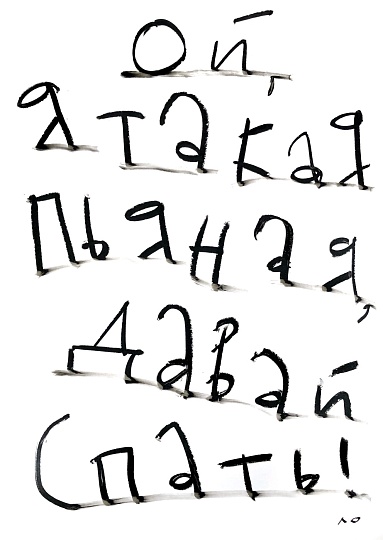 Ой,
я такая
пьяная,
давай
спать!
ло